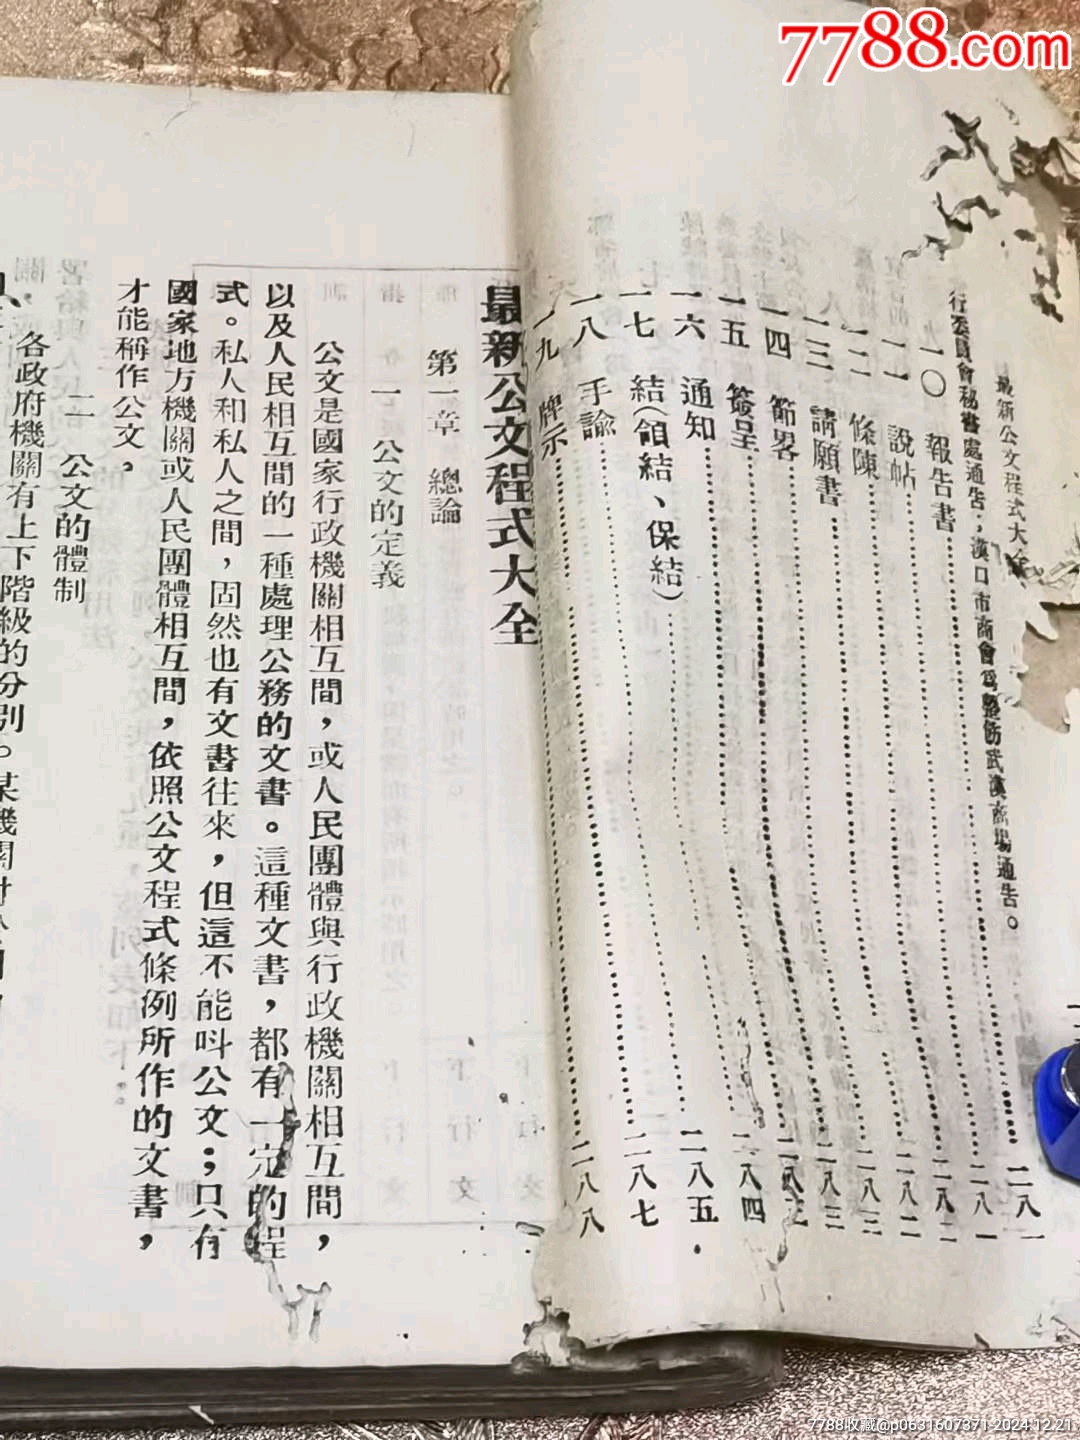 7788.com
最新公文程式大全
行委員會秘書處通告，漢口市商會爲整飭武漢商場通告。
二八一
一〇 報告書 二八一
一一 說帖 二八二
一二 條陳 二八二
一三 請願書 二八三
一四 節畧 二八三
一五 簽呈 二八三
一六 通知 二八四
一七 結（領結、保結） 二八五
一八 手諭 二八七
一九 牌示 二八八
最新公文程式大全
第一章 總論
一 公文的定義
公文是國家行政機關相互間，或人民團體與行政機關相互間，
以及人民相互間的一種處理公務的文書。這種文書，都有一定的程
式。私人和私人之間，固然也有文書往來，但這不能呌公文；只有
國家地方機關或人民團體相互間，依照公文程式條例所作的文書，
才能稱作公文，
二 公文的體制
各政府機關有上下階級的分別。某機關對
7788收藏@p0631607371-2024.12.21